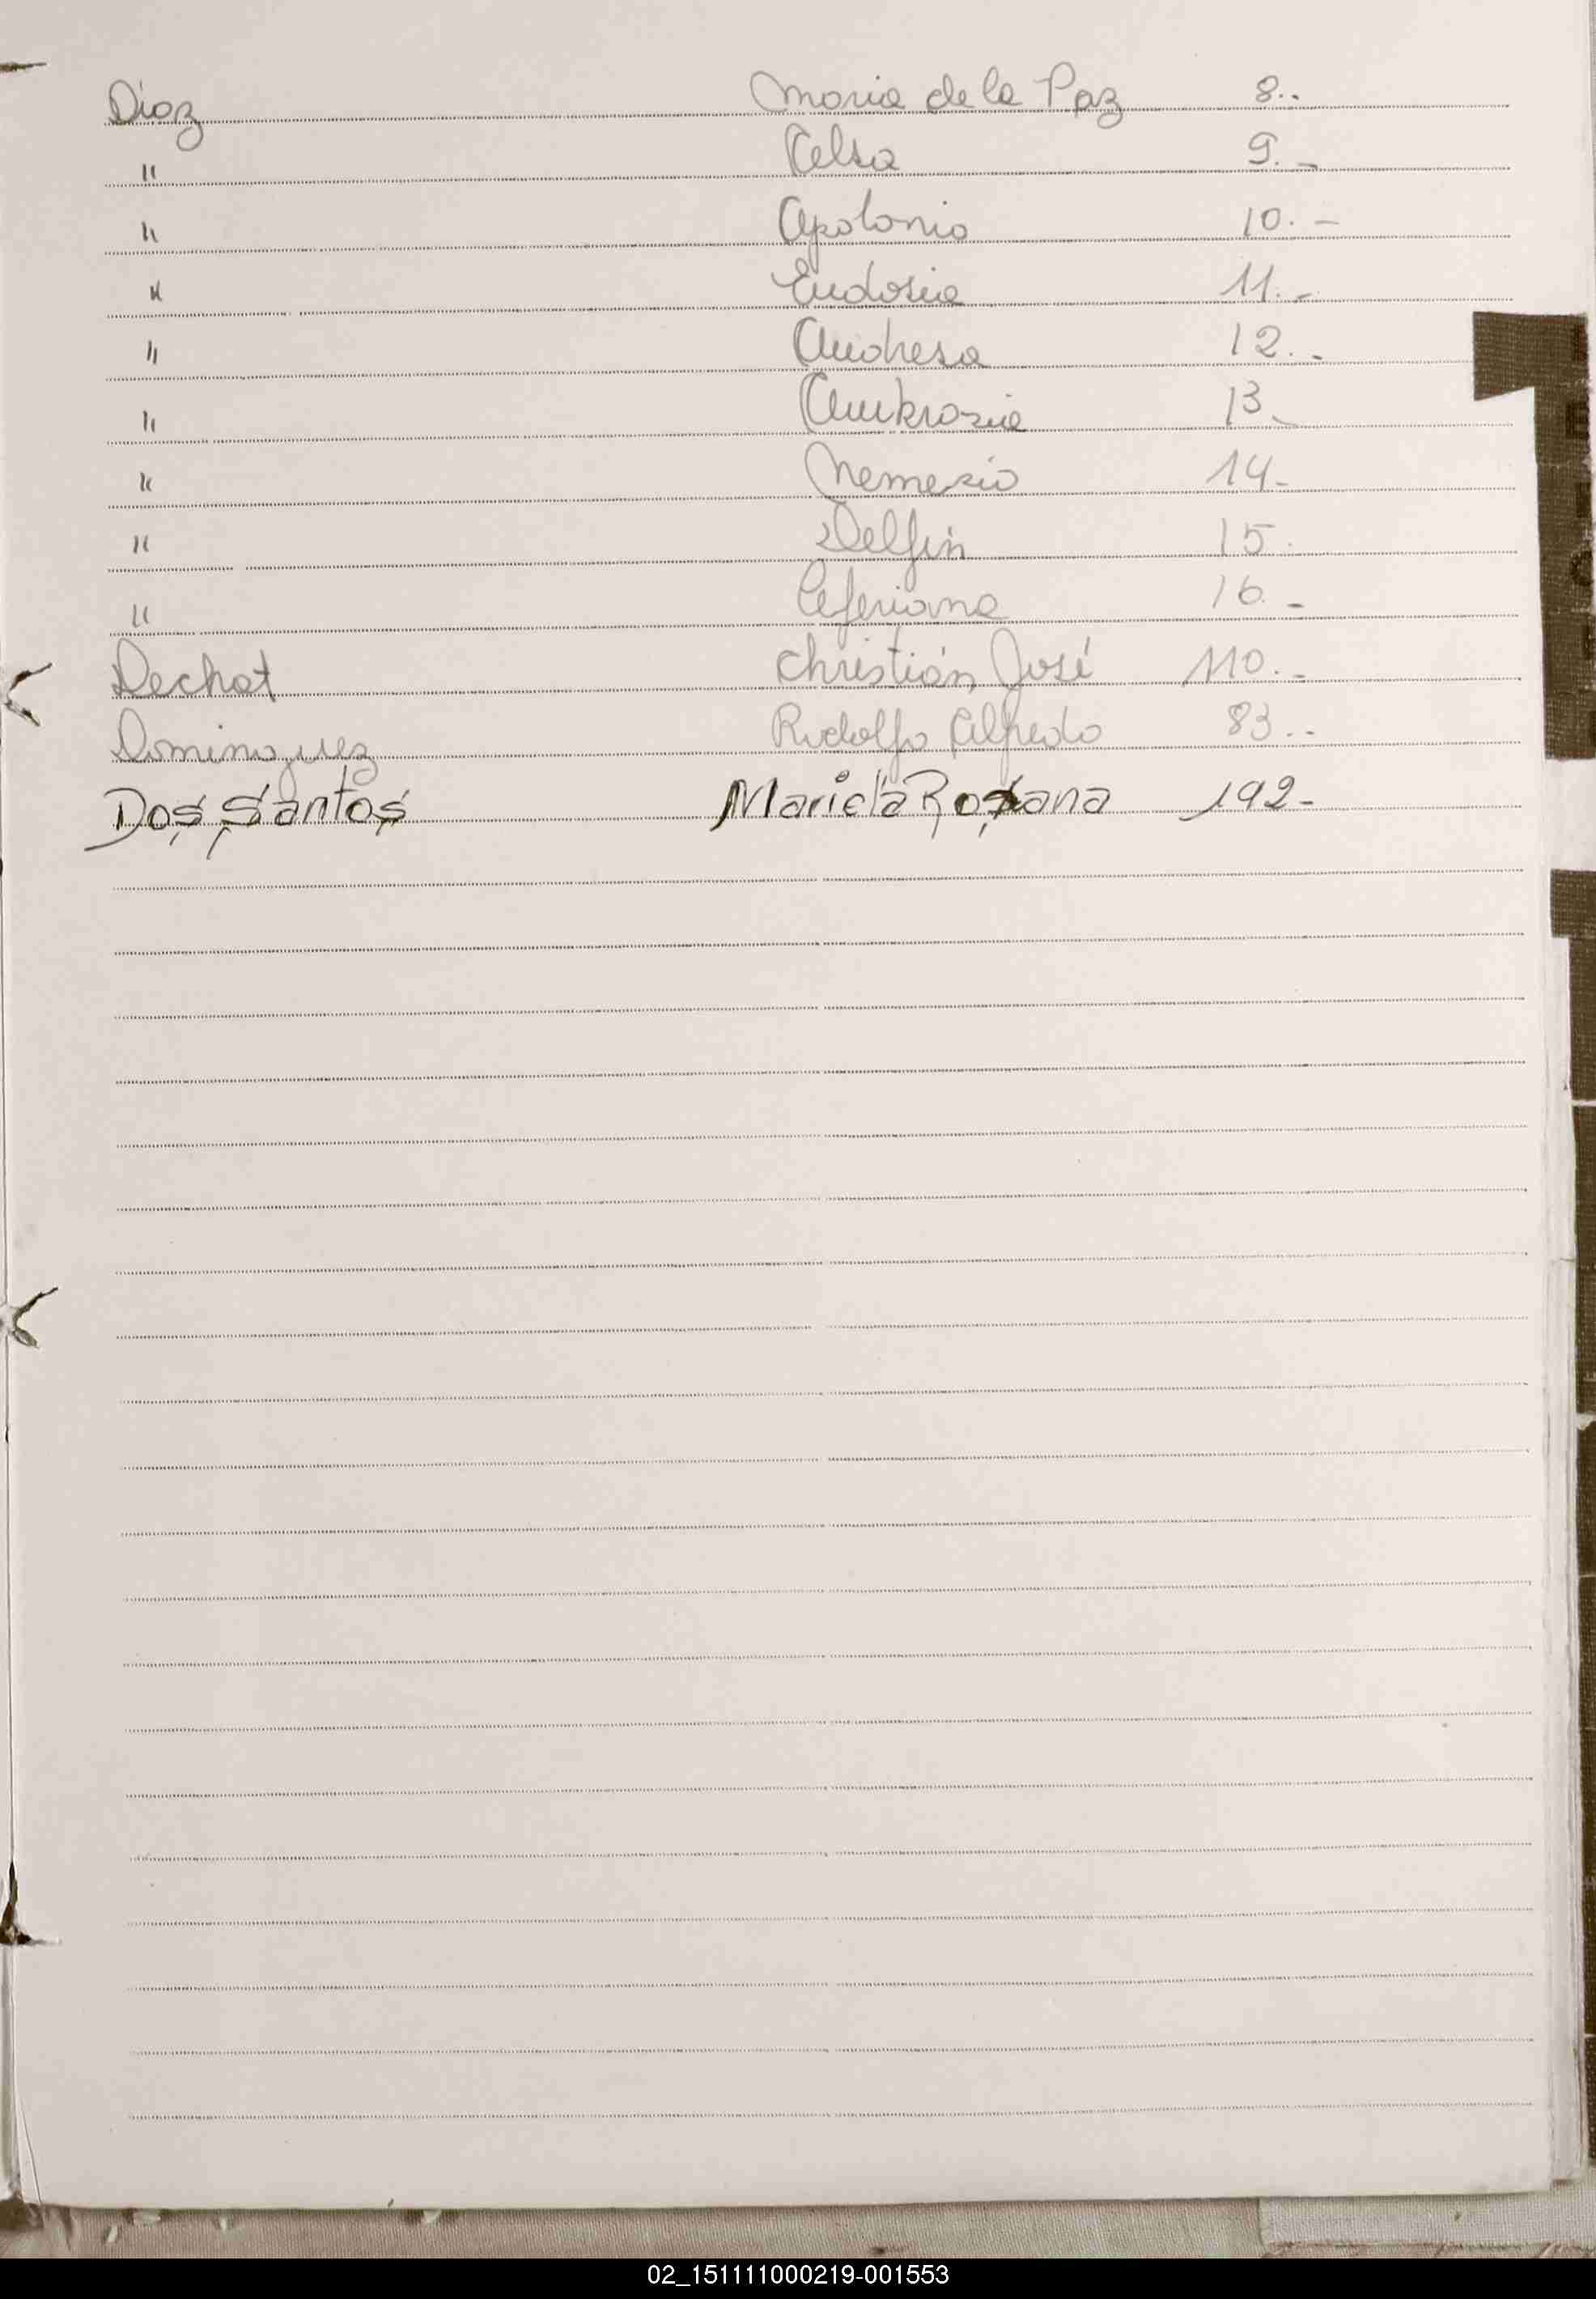 Diaz Maria de la Paz 8.-
" Celsa 9.-
" Apolonio 10.-
" Eudosia 11.-
" Andresa 12.-
" Ambrosia 13.-
" Nemesio 14-
" Delfin 15.
" Ceferiana 16.-
Dechat Christián José 110.-
Dominguez Rodolfo Alfredo 83.-
Dos Santos Mariela Rosana 192-
02_151111000219-001553